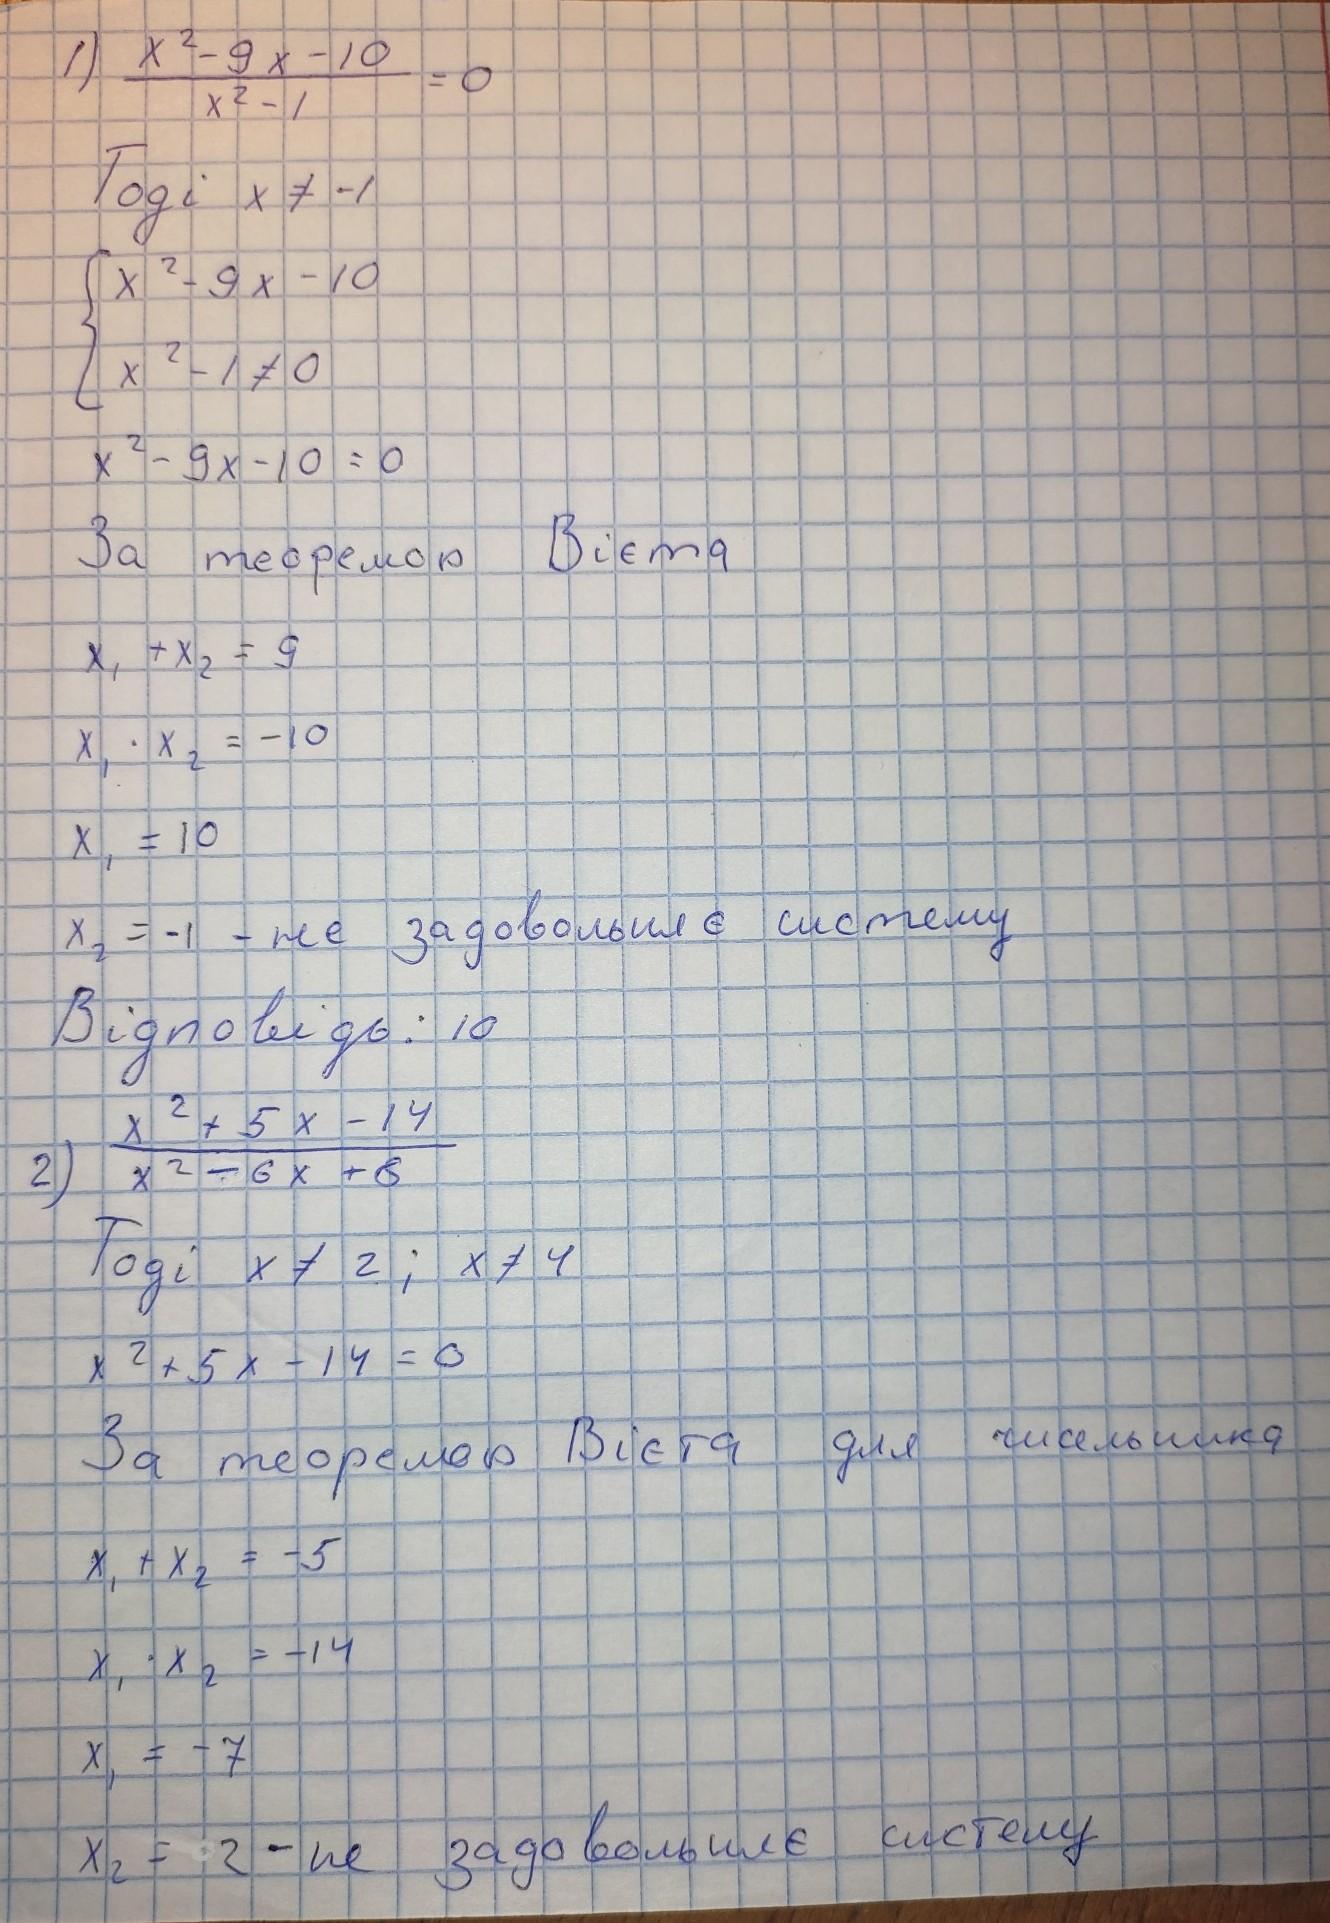 1) (x² - 9x - 10) / (x² - 1) = 0
Тоді x ≠ -1
{ x² - 9x - 10
x² - 1 ≠ 0
x² - 9x - 10 = 0
За теоремою Вієта
x₁ + x₂ = 9
x₁ · x₂ = -10
x₁ = 10
x₂ = -1 - не задовольняє систему
Відповідь: 10
2) (x² + 5x - 14) / (x² - 6x + 8)
Тоді x ≠ 2; x ≠ 4
x² + 5x - 14 = 0
За теоремою Вієта для чисельника
x₁ + x₂ = -5
x₁ · x₂ = -14
x₁ = -7
x₂ = 2 - не задовольняє систему